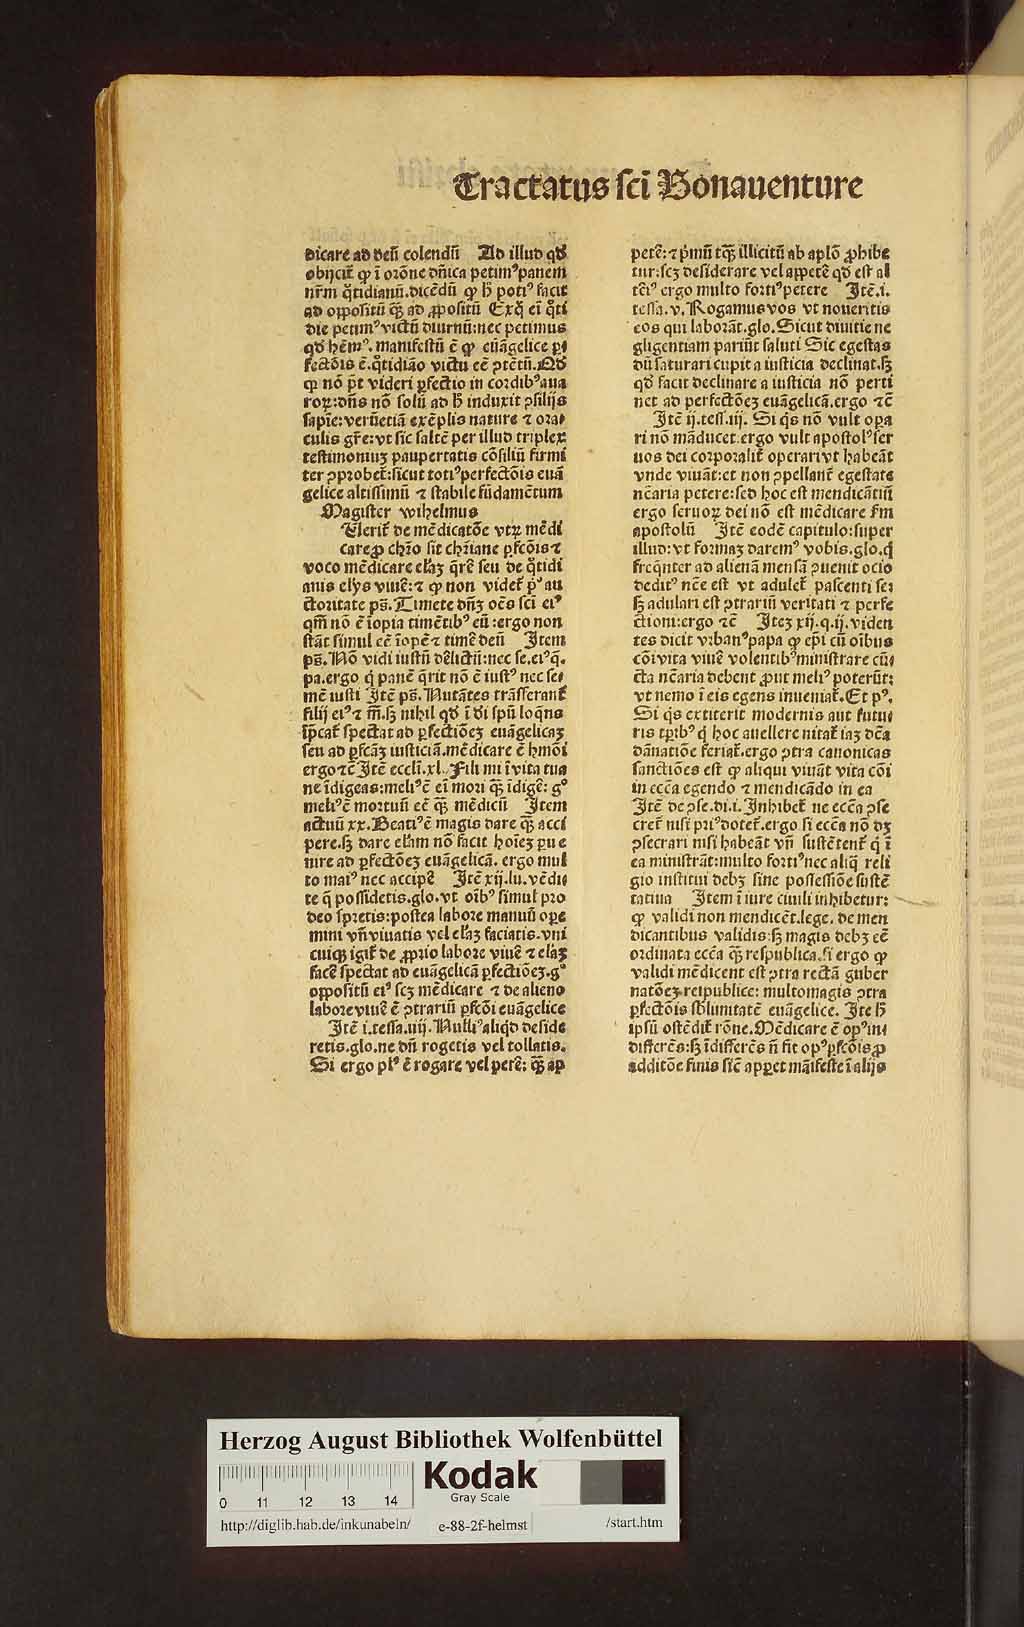 Tractatus sci Bonauenture
dicare ad deū colendū Ad illud qd
obijcit̄ ꝙ ī orōne dn̄ica petimꝰ panem
nr̄m q̄tidianū.dicēdū ꝙ h̄ potiꝰ facit
ad oppositū qꝫ̄ ad ꝓpositū Exq̄ ei q̄ti
die petimꝰ victū diurnū:nec petimus
qd hēmꝰ. manifestū ē ꝙ euāgelice ꝑ
fectōis ē.q̄tidiāo victu eē ꝯtētū.Qd
ꝙ nō pt̄ videri ꝑfectio in cordibꝰ aua
roꝝ:dn̄s nō solū ad h̄ induxit ꝯsilijs
sapīe:verūetiā exēplis nature ⁊ ora
culis gr̄e:vt sic saltē per illud triplex
testimoniuꝫ paupertatis cōsiliū firmi
ter ꝯprobet̄:sicut totiꝰ perfectōis euā
gelice altissimū ⁊ stabile fūdamētum
Magister wihelmus
Clerit̄ de mēdicatōe vtꝝ mēdi
care ꝓ chr̄o sit chr̄iane ꝑfcōis ⁊
voco mēdicare elaꝫ q̄rē seu de q̄tidi
anis elys viuē:⁊ ꝙ non videt̄ pꝰ au
ctoritate ps̄. Timete dn̄ꝫ oēs sci eiꝰ
qm̄ nō ē īopia timētibꝰ eū:ergo non
stāt simul eē īopē ⁊ timē deū Item
ps̄. Nō vidi iustū dēlictū:nec se.eiꝰ q̄.
pa.ergo q̄ panē q̄rit nō ē iustꝰ nec se
mē iusti Itē ps̄. Nutātes trāsferant̄
filij eiꝰ ⁊ m̄.sꝫ nihil qd ī di spū loq̄ns
īp̄cat̄ spectat ad ꝑfectiōeꝫ euāgelicaꝫ
seu ad ꝑfcāꝫ iusticiā.mēdicare ē hmōi
ergo ⁊c̄ Itē eccli.xl. Fili mi ī vita tua
ne īdigeas:meliꝰ ē ei mori qꝫ̄ īdigē: gͦ
meliꝰ ē mortuū eē qꝫ̄ mēdicū Item
actuū xx. Beatiꝰ ē magis dare qꝫ̄ acci
pere.sꝫ dare elam nō facit hoieꝫ ꝑue
nire ad ꝑfectōeꝫ euāgelicā. ergo mul
to maiꝰ nec accipē Itē xij.lu.vēdi
te q̄ possidetis.glo.vt oībꝰ simul pro
deo spretis:postea labore manuū ope
mini vn̄ viuatis vel elaꝫ faciatis.vni
cuiqꝫ igit̄ de ꝓprio labore viuē ⁊ elaꝫ
facē spectat ad euāgelicā ꝑfectiōeꝫ.gͦ
oppositū eiꝰ scꝫ mēdicare ⁊ de alieno
labore viuē ē ꝯtrariū ꝑfcōi euāgelice
Itē i.tessa.iiij. Nulliꝰ aliqd deside
retis.glo.ne dū rogetis vel tollatis.
Si ergo plꝰ ē rogare vel petē: qꝫ̄ ap
petē:⁊ pmū tqꝫ̄ illicitū ab aplo ꝓhibe
tur:scꝫ desiderare vel appetē qd est al
tēiꝰ ergo multo fortiꝰ petere Itē.i.
tessa.v. Rogamus vos vt noueritis
eos qui laborāt.glo.Sicut diuitie ne
gligentiam pariūt saluti Sic egestas
dū saturari cupit a iusticia declinat.sꝫ
qd facit declinare a iusticia nō perti
net ad perfectōeꝫ euāgelicā.ergo ⁊c̄
Itē ij.tess.iij. Si q̄s nō vult opa
ri nō māducet.ergo vult apostolꝰ ser
uos dei corporalit̄ operari vt habeāt
vnde viuāt:et non ꝯpellant̄ egestate
nēaria petere:sed hoc est mendicātiū
ergo seruoꝝ dei nō est mēdicare ẜm
apostolū Itē eodē capitulo:super
illud:vt formaꝫ daremꝰ vobis.glo.q̄
freq̄nter ad alienā mensā ꝯuenit ocio
deditꝰ nēe est vt adulet̄ pascenti se:
sꝫ adulari est ꝯtrariū veritati ⁊ perfe
ctioni:ergo ⁊c̄ Iteꝫ xij.q.ij.viden
tes dicit vrbanꝰ papa ꝙ epi cū oībus
cōi vita viuē volentibꝰ ministrare cū
cta nēaria debent ꝓut meliꝰ poterūt:
vt nemo ī eis egens inueniat̄. Et pꝰ.
Si q̄s extiterit modernis aut futu
ris tꝑibꝰ q̄ hoc auellere nitat̄ iaꝫ dc̄a
dānatiōe feriat̄.ergo ꝯtra canonicas
sanctiōes est ꝙ aliqui viuāt vita cōi
in ecc̄a egendo ⁊ mendicādo in ea
Itē de ꝯse.di.i. Inhibet̄ ne ecc̄a ꝯse
cret̄ nisi priꝰ dotet̄.ergo si ecc̄a nō dꝫ
ꝯsecrari nisi habeāt vn̄ sustētent̄ q̄ ī
ea ministrāt:multo fortiꝰ nec aliq̄ reli
gio institui debꝫ sine possessiōe sustē
tatiua Item ī iure ciuili inhibetur:
ꝙ validi non mendicēt.lege. de men
dicantibus validis:sꝫ magis debꝫ eē
ordinata ecc̄a qꝫ̄ respublica.si ergo ꝙ
validi mēdicent est ꝯtra rectā guber
natōeꝫ reipublice: multomagis ꝯtra
ꝑfectōis sblimitatē euāgelice. Ite h̄
ipsū ostēdit̄ rōne. Mēdicare ē opꝰ in
differēs:sꝫ īdifferēs n̄ fit opꝰ ꝑfcōis ꝓ
additōe finis sic̄ apparet māifeste ī alijs
Herzog August Bibliothek Wolfenbüttel
Kodak
Gray Scale
0 11 12 13 14
http://diglib.hab.de/inkunabeln/ e-88-2f-helmst /start.htm